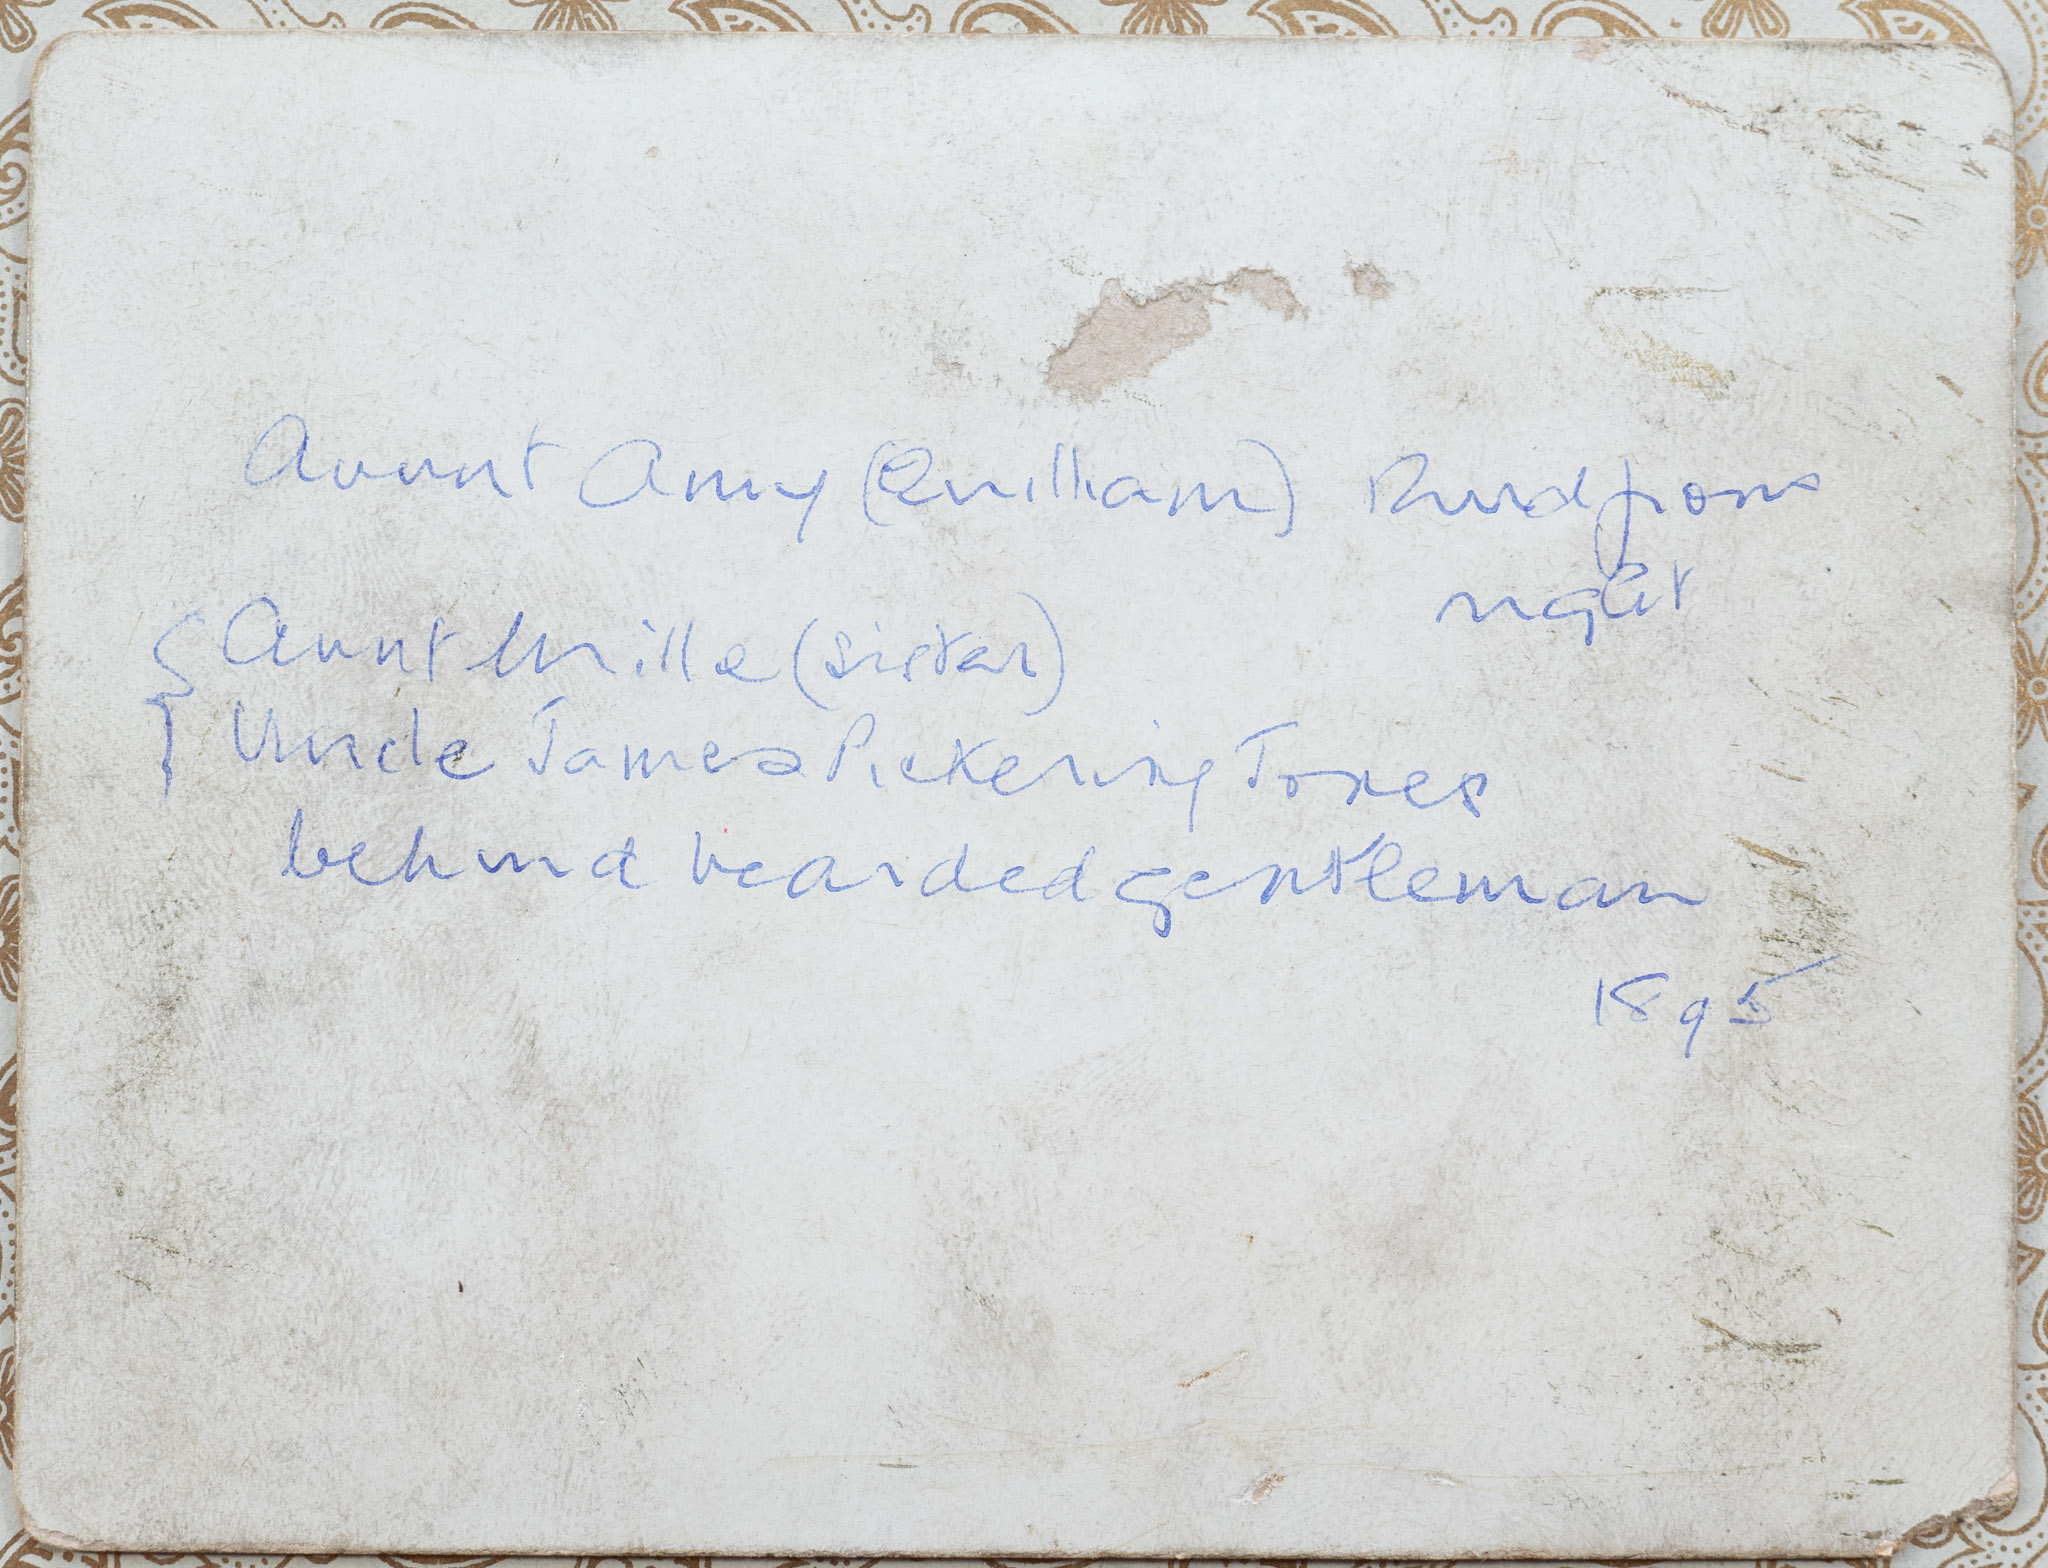 Aunt Amy (Quilliam) Third from
right
Aunt Mille (sister)
Uncle James Pickering Jones
behind bearded gentleman
1895